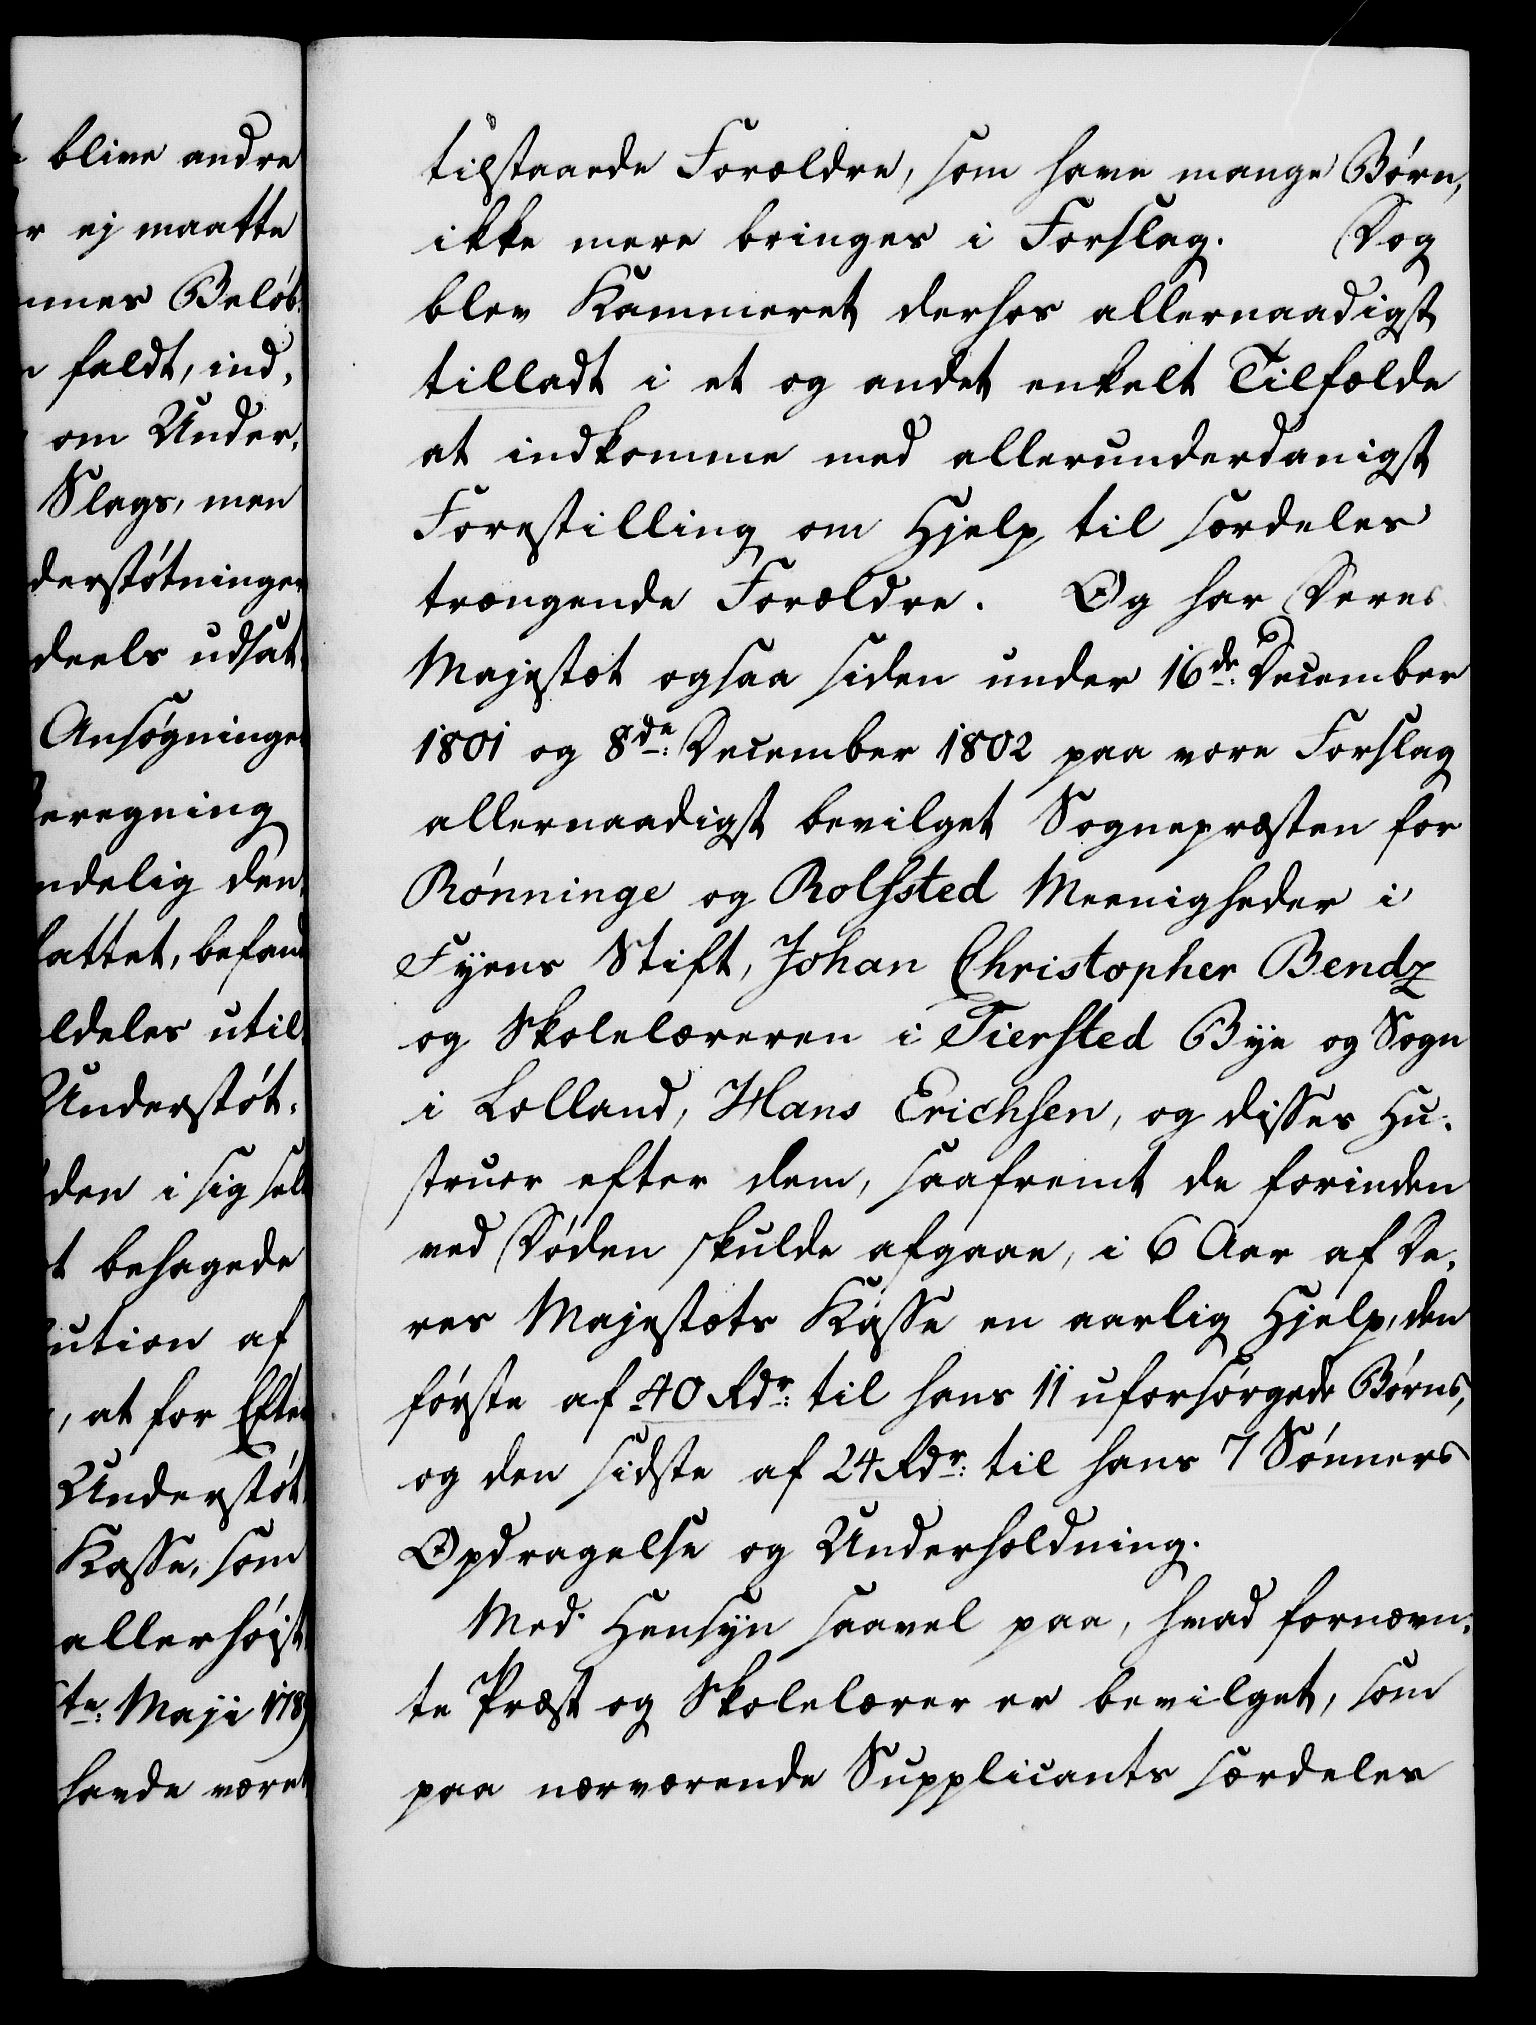 blive andre
r ej maatte
mmes Beløb
faldt, ind-
om Under-
Slags, men
derstøtninger
deels udsat
Ansøgninger
eregning
ndelig den
fattet, befand
ldeles util
Understøt-
den i sig selv
t behagede
ution af
, at for Efter
Understøt
Kasse, som
allerhøist
te: Maji 178
havde været
tilstaaede Forældre, som have mange Børn,
ikke mere bringes i Forslag. Dog
blev Kammeret derhos allernaadigst
tilladt i et og andet enkelt Tilfælde
at indkomme med allerunderdanigst
Forestilling om Hjelp til særdeles
trængende Forældre. Og har Deres
Majestæt ogsaa siden under 16de: December
1801 og 8de: December 1802 paa vore Forslag
allernaadigst bevilget Sognepræsten for
Rønninge og Rolfsted Meenigheder i
Fyens Stift, Johan Christopher Bendz
og Skolelæreren i Tiersted Bye og Sogn
i Lolland, Hans Erichsen, og disses Hu-
struer efter dem, saafremt de forinden
ved Døden skulde afgaae, i 6 Aar af De-
res Majestæts Kasse en aarlig Hjelp, den
første af 40 Rdr: til hans 11 uforsørgede Børns,
og den sidste af 24 Rdr: til hans 7 Sønners
Opdragelse og Underholdning.
Med Hensyn saavel paa, hvad fornævn-
te Præst og Skolelærer er bevilget, som
paa nærværende Supplicants særdeles